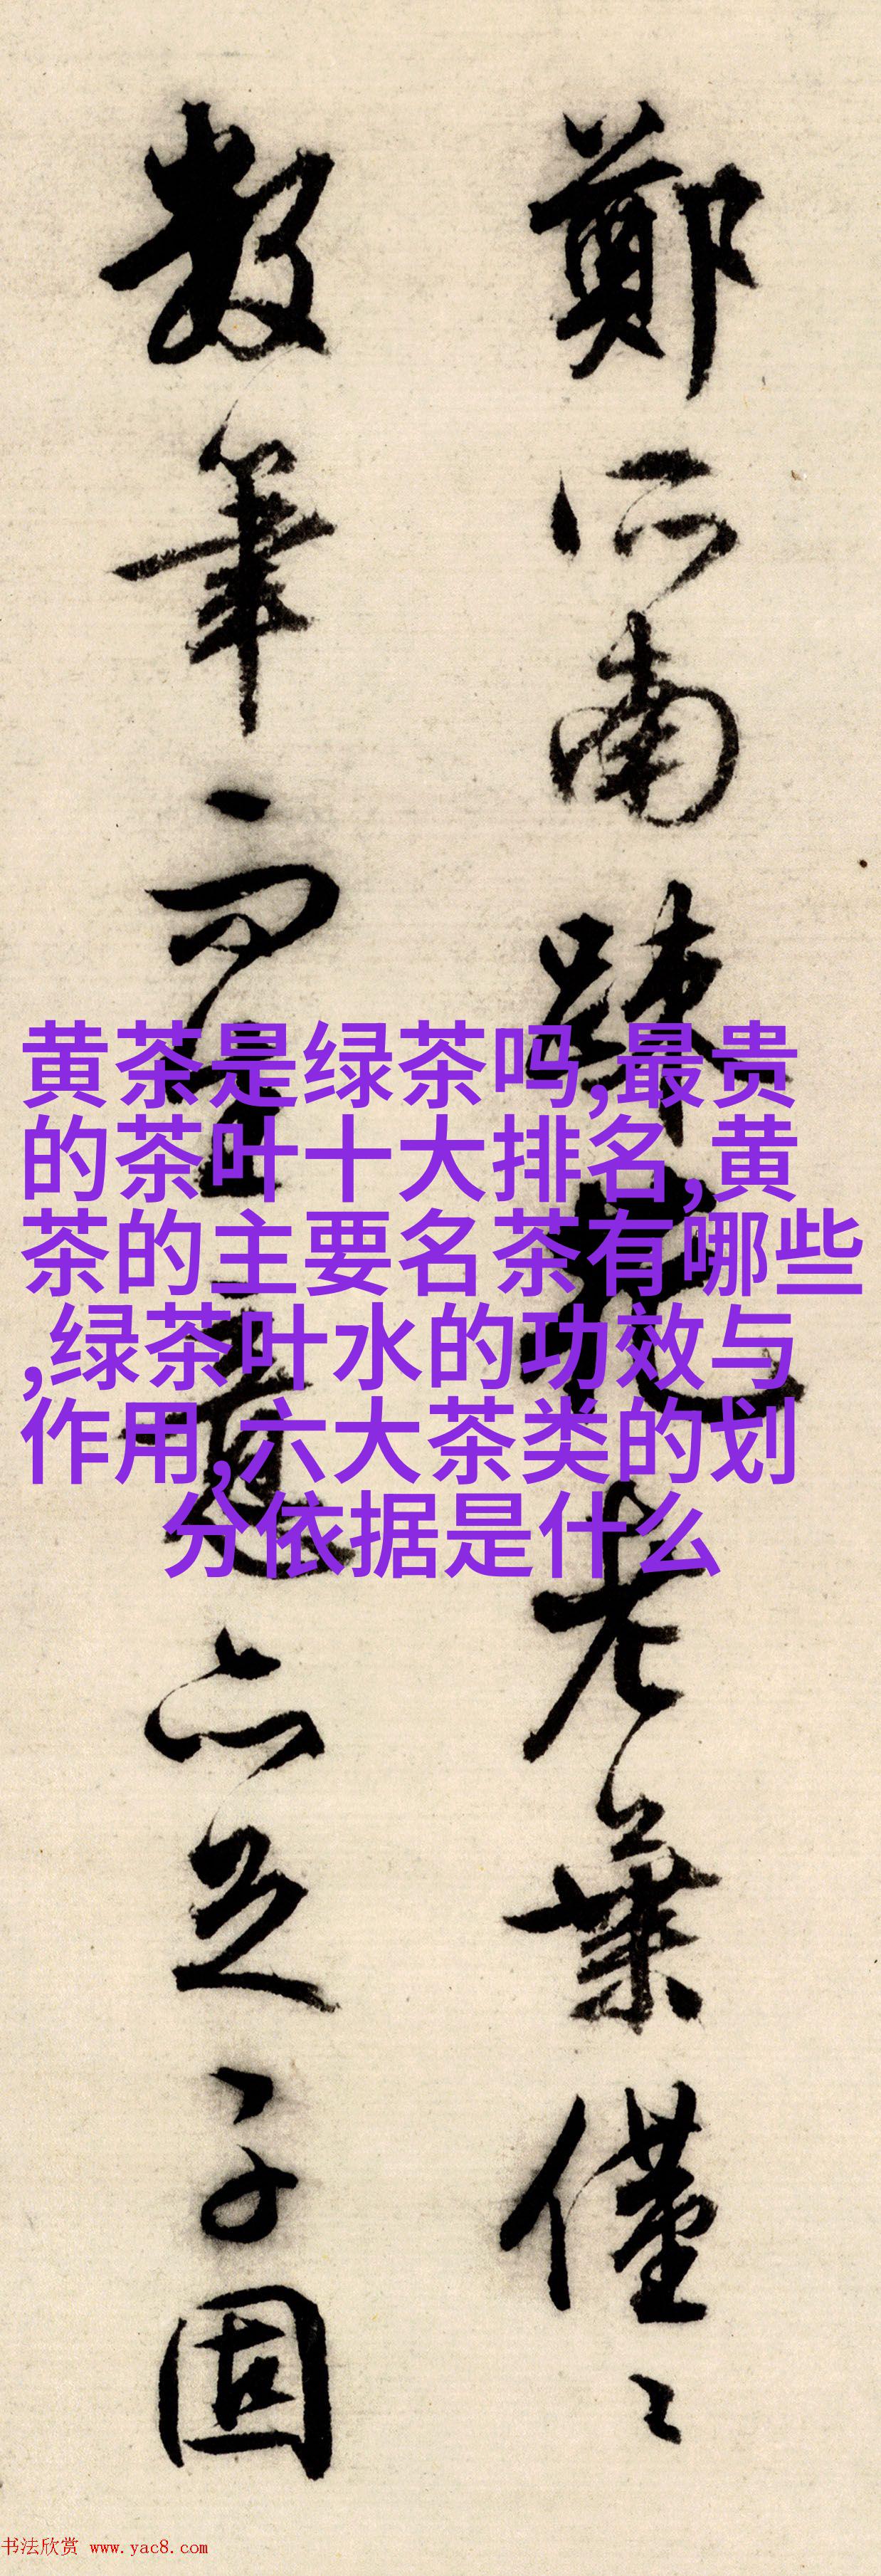 鄭所南疎花老葉僅〻
數筆而生意亦足予固
黄茶是绿茶吗,最贵
的茶叶十大排名,黄
茶的主要名茶有哪些
,绿茶叶水的功效与
作用,六大茶类的划
分依据是什么
书法欣赏 www.yac8.com